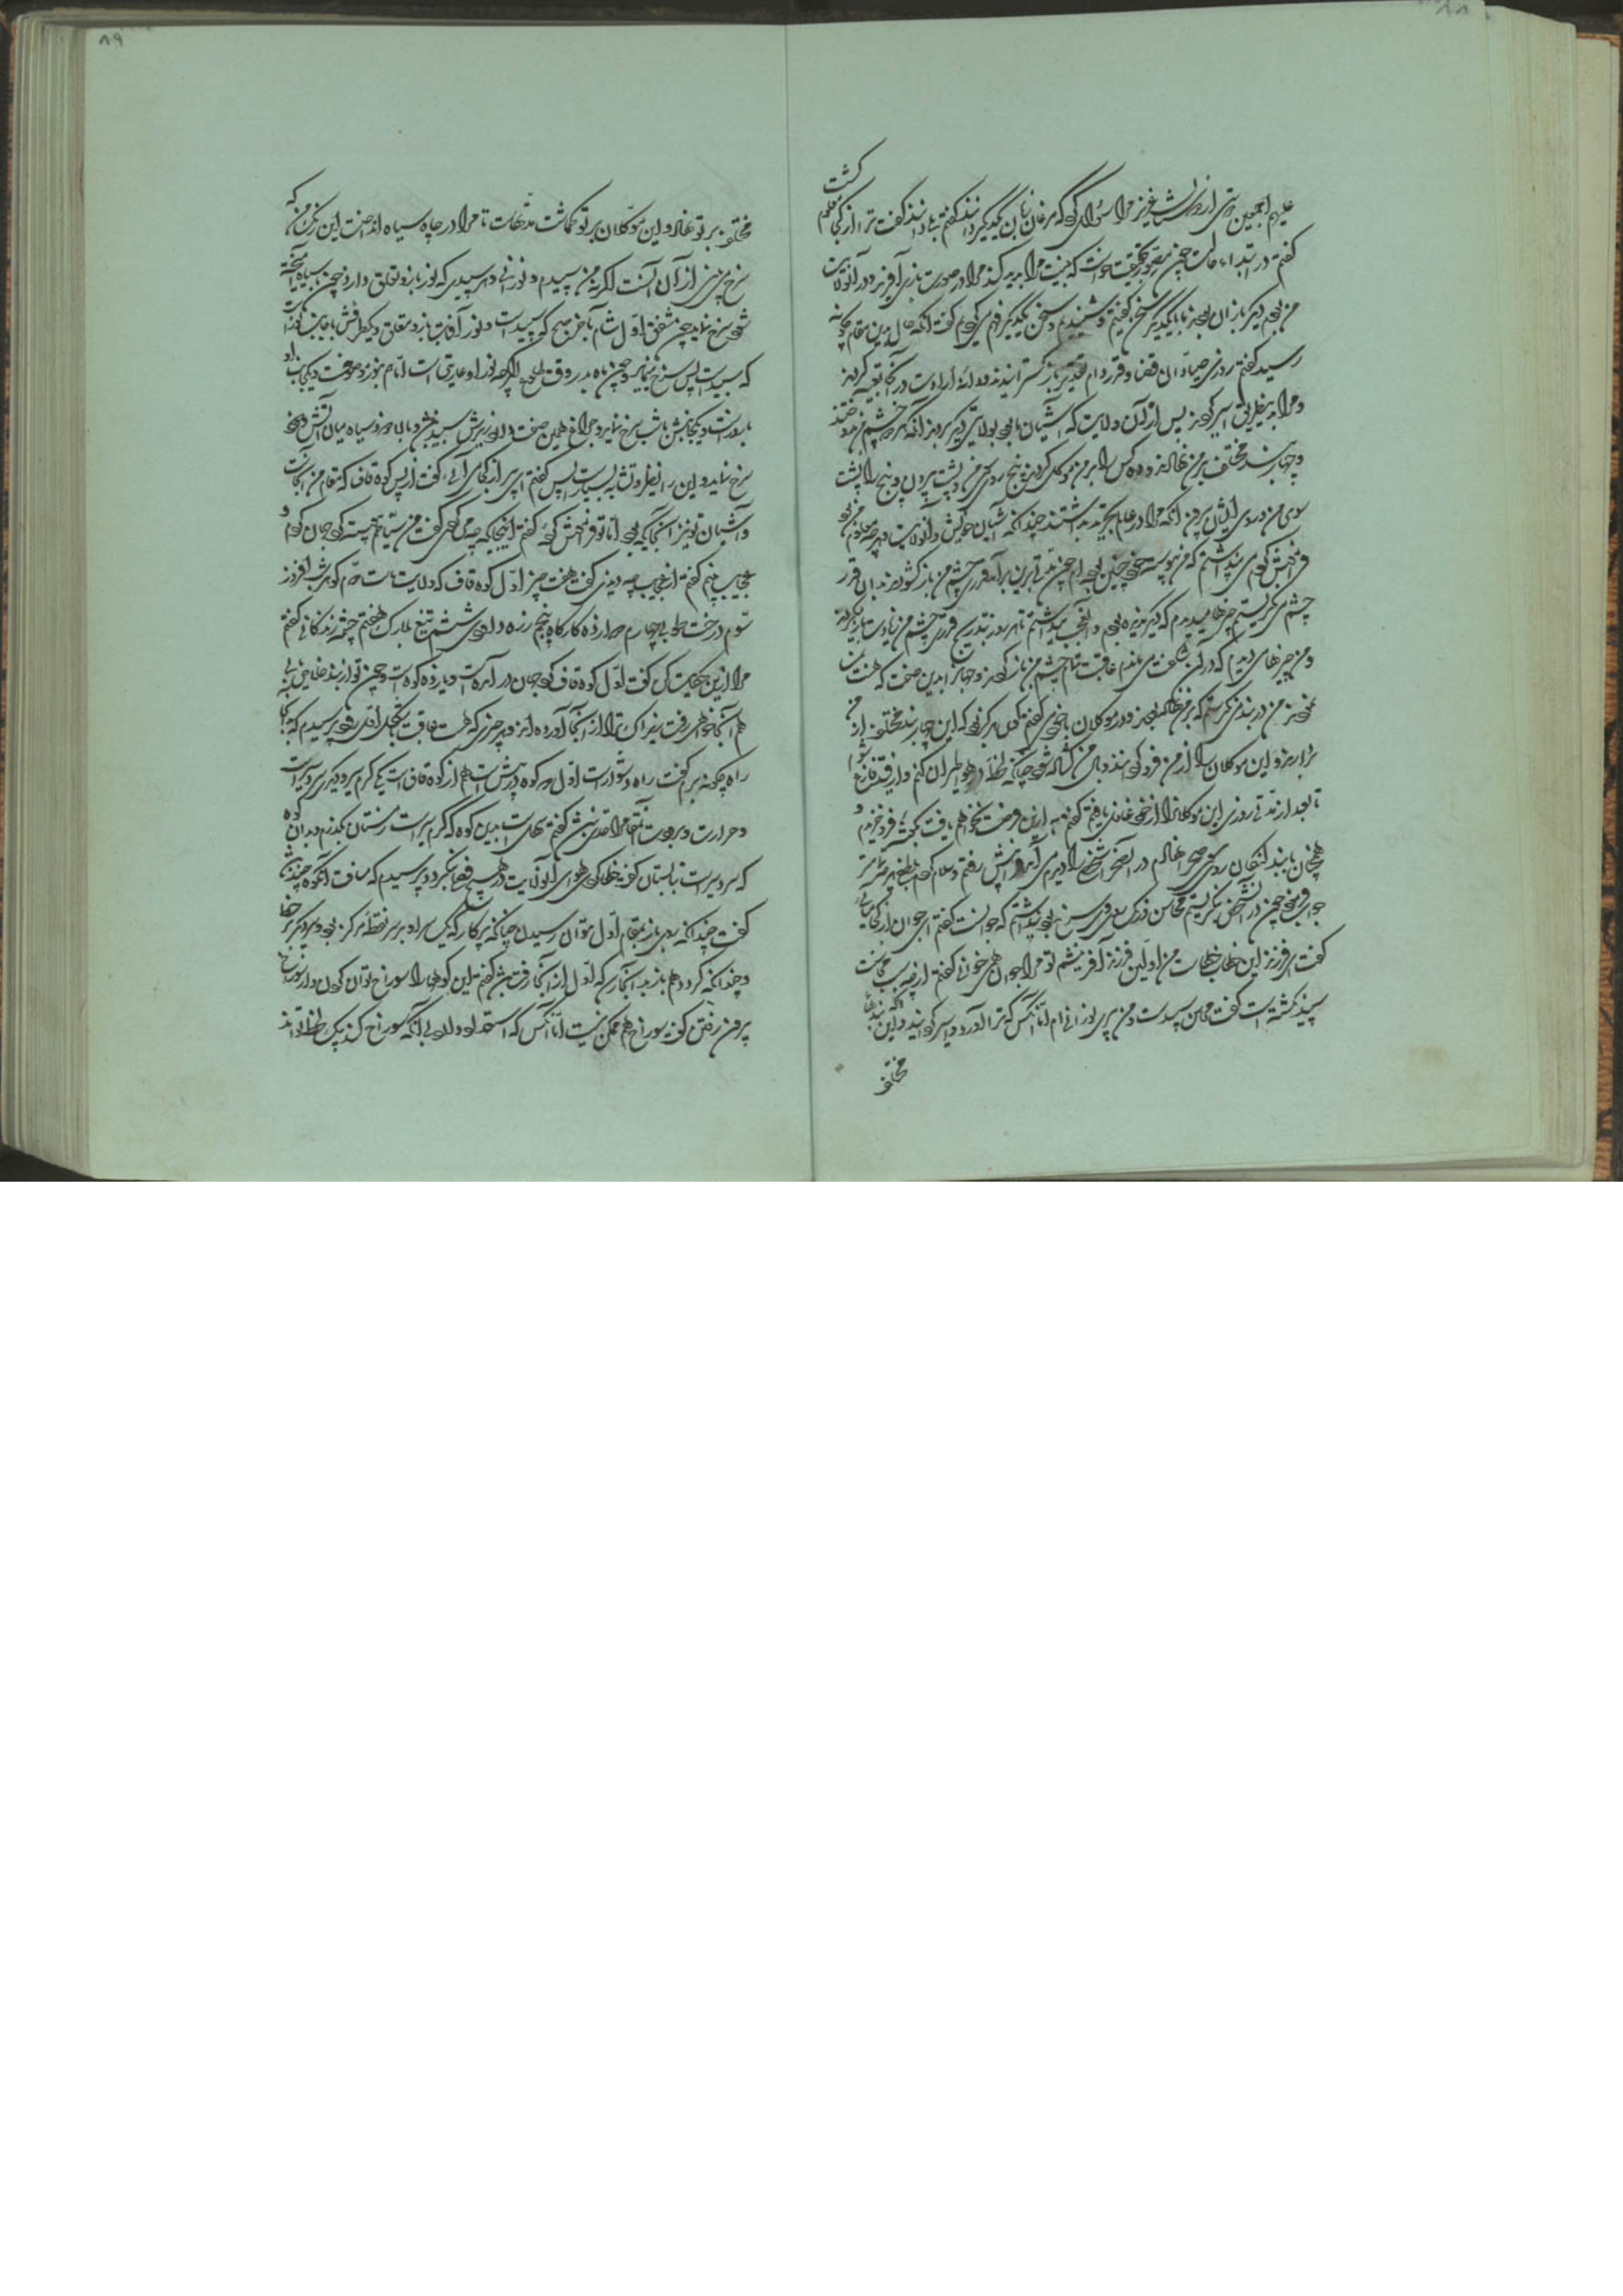 علیهم اجمعین دوستی از دوستان عزیز مرا سؤال کرد که مرغان زبان یکدیگر دانند گفتم بلی دانند گفت ترا از کجا معلوم گشت
گفتم در ابتداء حالت چون مصور بحقیقت خواست که بنیت مرا پدید کند مرا در صورت بازی آفرید و در آن ولایت که
من بودم دیگر بازان بودند ما با یکدیگر سخن گفتیم و شنیدیم و سخن یکدیگر فهم می‌کردیم گفت آنگه حال بدین مقام چگونه
رسید گفتم روزی صیادان قضا و قدر دام تقدیر باز گسترانیدند و دانه ارادت در آنجا تعبیه کردند
و مرا بدین طریق اسیر کردند پس از آن ولایت که آشیان ما بود بولایتی دیگر بردند آنگه هر دو چشم من بر دوختند
و چهار بند مختلف بر من نهادند و ده کس را بر من موکل کردند پنج روی سوی من و پشت بیرون و پنج را پشت
سوی من و روی ایشان بیرون آنگه مرا در عالم تحیر بداشتند چندانکه آشیان خویش و آن ولایت و هر چه معلوم من بود
فراموش کردم می پنداشتم که من پیوسته خود چنین بوده‌ام چون مدتی برین برآمد قدری چشم من باز گشودند بدان قدر
چشم می نگریستم چیزها میدیدم که دیگر ندیده بودم و آن عجب میداشتم تا هر روز بتدریج قدری چشم من زیادت باز میکردند
و من چیزهای میدیدم که در آن شگفت می ماندم عاقبت تمام چشم من باز کردند و جهانرا بدین صفت که هست بمن
نمودند من در بند می نگریستم که بر من نهاده بودند و در موکلان با خود می گفتم گوئی هرگز بود که این چهار بند مختلف از من
بردارند و این موکلان را از من فرو گردانند و بال من گشاده شود چنانکه لحظه‌ای در هوا طیران کنم و از قید فارغ شوم
تا بعد از مدتی روزی این موکلانرا از خود غافل یافتم گفتم به ازین فرصت نخواهم یافت بگوشه فرو خزیدم و
همچنان با بند لنگان روی سوی صحرا نهادم در آن صحرا شخصی را دیدم که می آمد فرا پیش رفتم و سلام کردم بلطف هر چه تمامتر
جواب فرمود چون در آن شخص نگریستم محاسن و رنگ و روی وی سرخ بود پنداشتم که جوانست گفتم ای جوان از کجا می‌آئی
گفت ای فرزند این خطاب بخطاست من اولین فرزند آفرینشم تو مرا جوان همی خوانی گفتم از چه سبب محاسنت
سپید نگشته است گفت محاسن من سپیدست و من پیری نورانی ام اما آنکس که ترا در دام اسیر گردانید و این بندهای
مختلف
مختلف بر تو نهاد و این موکلان بر تو گماشت مدتهاست تا مرا در چاه سیاه انداخت این رنگ من که
سرخ می بینی از آن است اگر نه من سپیدم و نورانی و هر سپیدی که نور باز و تعلق دارد چون با سیاه آمیخته
شود سرخ نماید چون شفق اول شام یا آخر صبح که سپیدست و نور آفتاب باز و متعلق و یک طرفش با جانب نورست
که سپیدست پس سرخ می نماید و جرم ماه بدر وقت طلوع اگر چه نور او عاریتی است اما هم بنور موصوفست و یکجانب او
با روزست و یکجانبش با شب سرخ نماید و چراغ همین صفت دارد زیرش سپید باشد و بالا بر دود سیاه میان آتش و دود
سرخ نماید و این را نظیر و تشبیه بسیارست پس گفتم ای پیر از کجا می آئی گفت از پس کوه قاف که مقام من آنجاست
و آشیان تو نیز آنجایگه بود اما تو فراموش کردهٔ گفتم اینجایگه چه می کردی گفت من سیاحم پیوسته گرد جهان گردم و
عجایب بینم گفتم از عجایب چه دیدی گفت هفت چیز اول کوه قاف که ولایت ماست دوم گوهر شب افروز
سوم درخت طوبی چهارم دوازده کارگاه پنجم زره داودی ششم تیغ بلارک هفتم چشمه زندگانی گفتم
مرا ازین حکایت کن گفت اول کوه قاف گرد جهان در آمده است و یازده کوهست و چون تو از بند خلاص یابی
هم آنجا خواهی رفت زیرا که ترا از آنجا آورده اند و هر چیزی که هست عاقبت بشکل اول رود پرسیدم که بدانجا
راه چگونه برم گفت راه دشوارست اول دو کوه در پیش است هم از کوه قاف است یکی گرم سیر و دیگری سردسیر است
و حرارت و برودت آن مقام را حدی نباشد گفتم سهل است بدین کوه که گرم سیرست زمستان بگذرم و بدان کوه
که سردسیرست بتابستان گفت خطا کردی هوای آن ولایت در هیچ فصل بنگردد پرسیدم که مسافت آن کوه چند باشد
گفت چندانکه روی باز بمقام اول توانی رسیدن چنانکه پرگار که یک سر او بر سر نقطه مرکز بود و سر دیگر بر خط
و چندانکه گردد هم باز بدانجا رسد که اول از آنجا رفته باشد گفتم این کوهها را سوراخ توان کردن و از سوراخ
بیرون رفتن گفت سوراخ هم ممکن نیست اما آنکس که استعداد دارد بی آنکه سوراخ کند بیک لحظه تواند
۸۹
۸۸